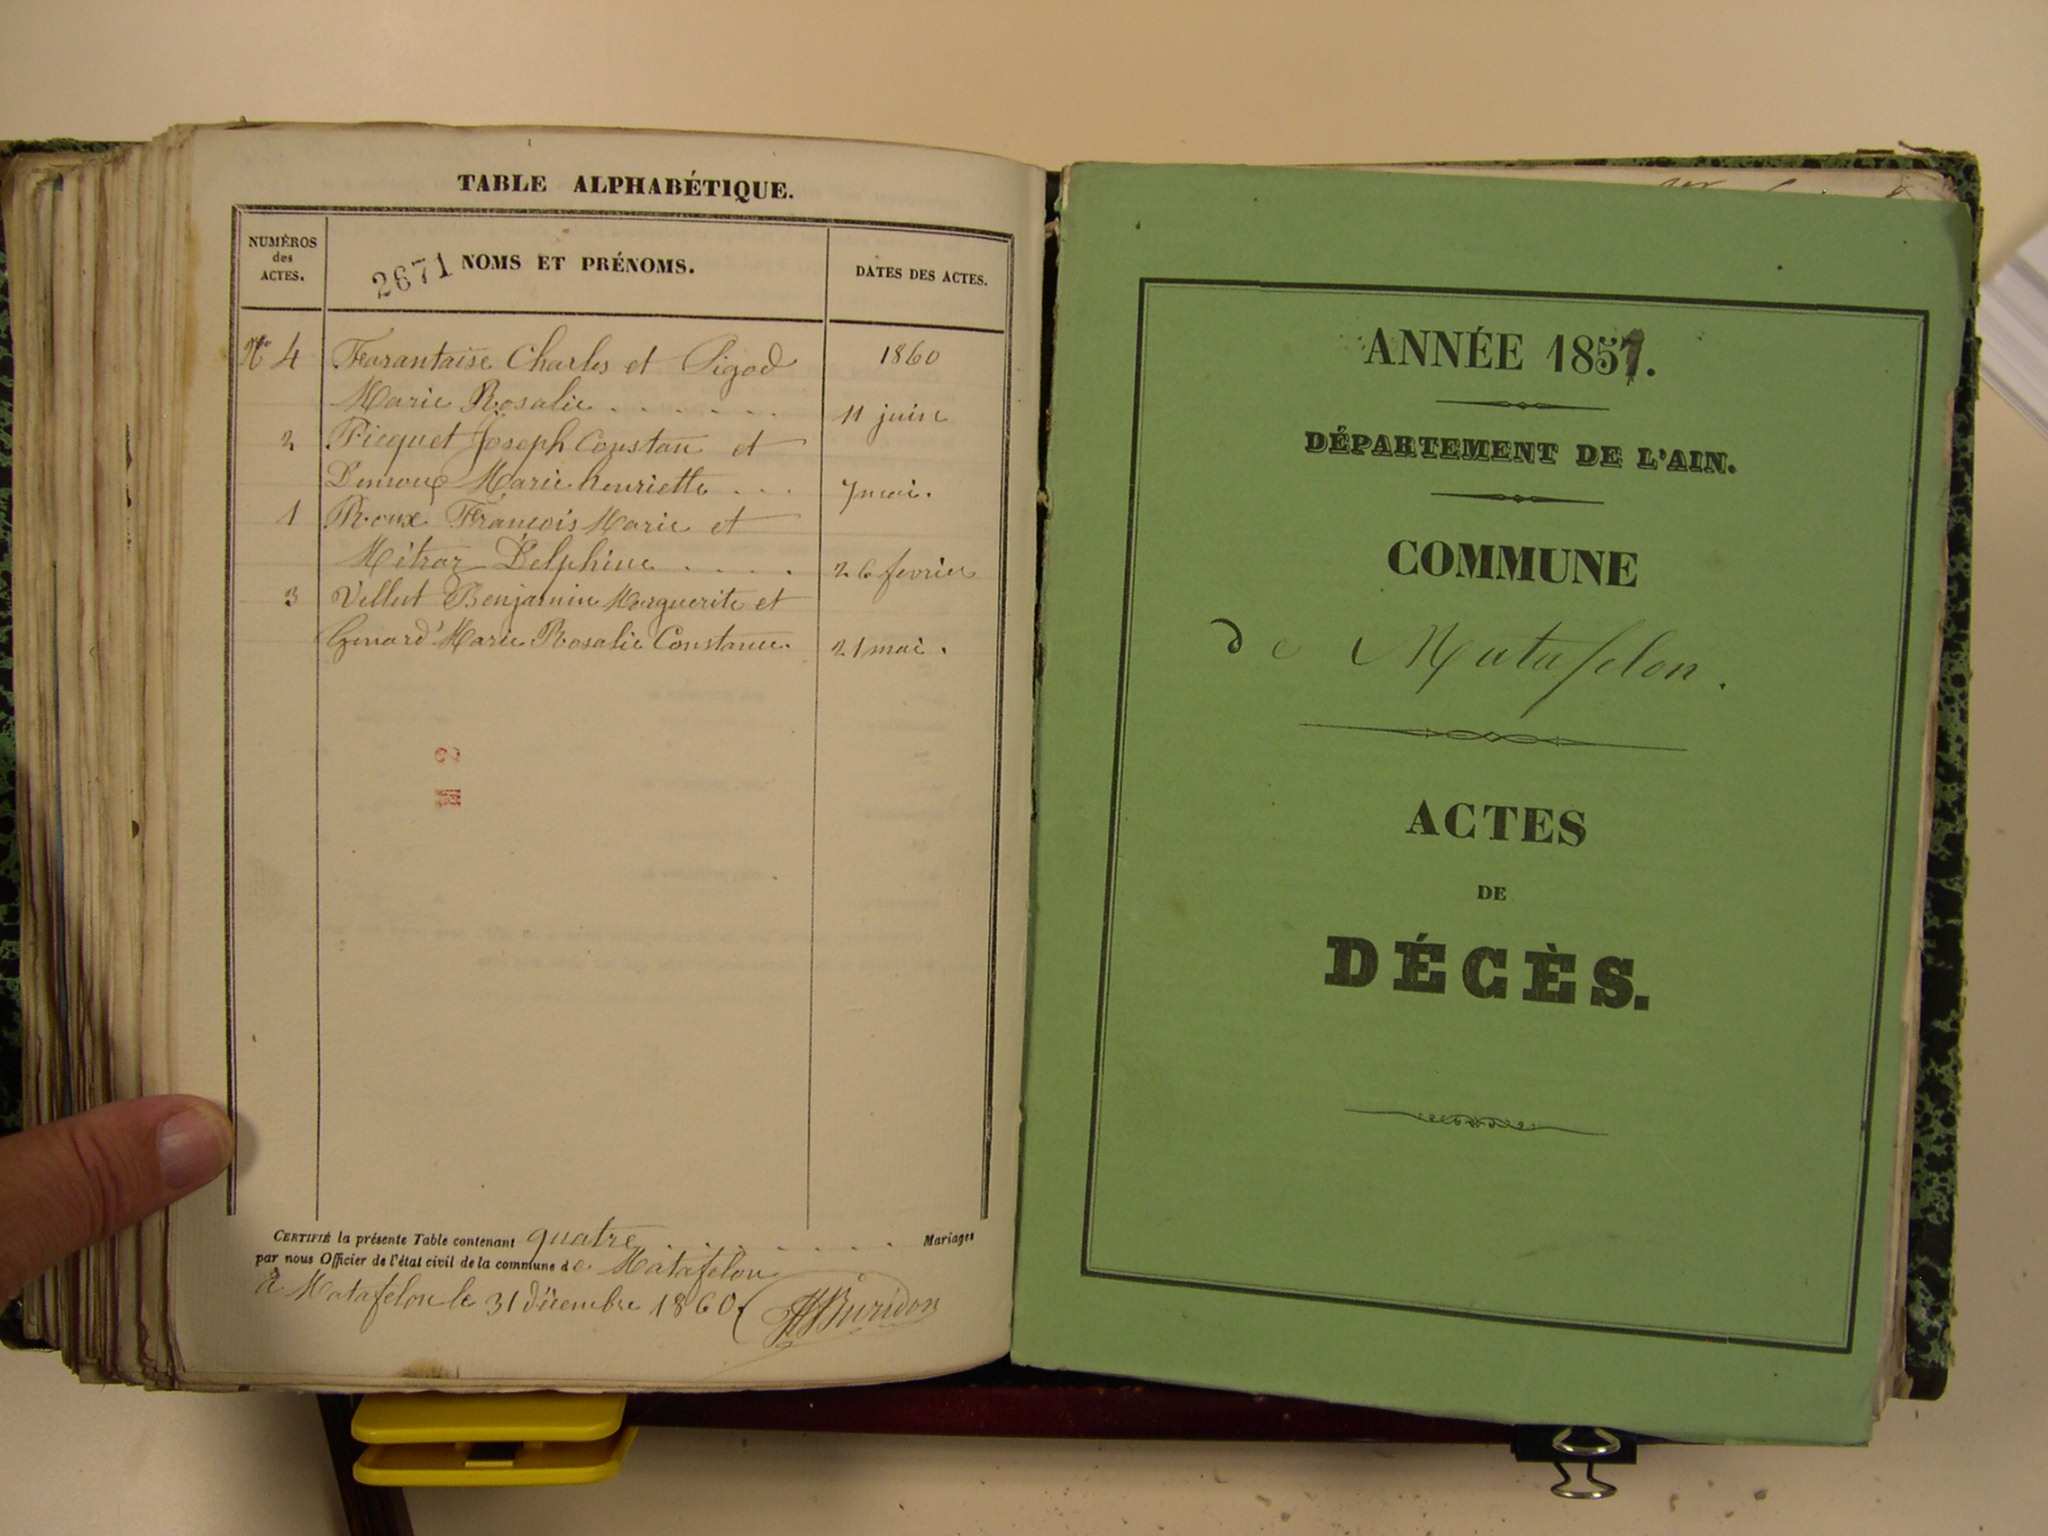 TABLE ALPHABÉTIQUE.
NUMÉROS
des
ACTES.
2671 NOMS ET PRÉNOMS.
DATES DES ACTES.
No 4 Farantaise Charles et Pigod 1860
Marie Rosalie . . . . . . 11 juin
2 Picquet Joseph Constan et
Marie henriette . . . 7 mai.
1 Roux François Marie et
Métraz Delphine . . . . 26 fevrier
3 Vellut Benjamin Marguerite et
Genard Marie Rosalie Constance. 21 mai.
CERTIFIÉ la présente Table contenant quatre . . . . . . . Mariages
par nous Officier de l'état civil de la commune de Matafelon
à Matafelon le 31 décembre 1860. Buridon
ANNÉE 1857.
DÉPARTEMENT DE L'AIN.
COMMUNE
de Matafelon.
ACTES
DE
DÉCÈS.